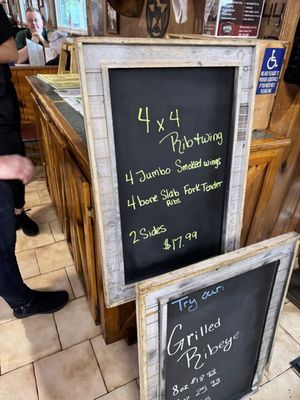 4 x 4
Rib + wing
4 Jumbo Smoked wings
4 bone Slab Fork Tender
Ribs
2 Sides
$17.99
Try our
Grilled
Ribeye
8oz $18.99